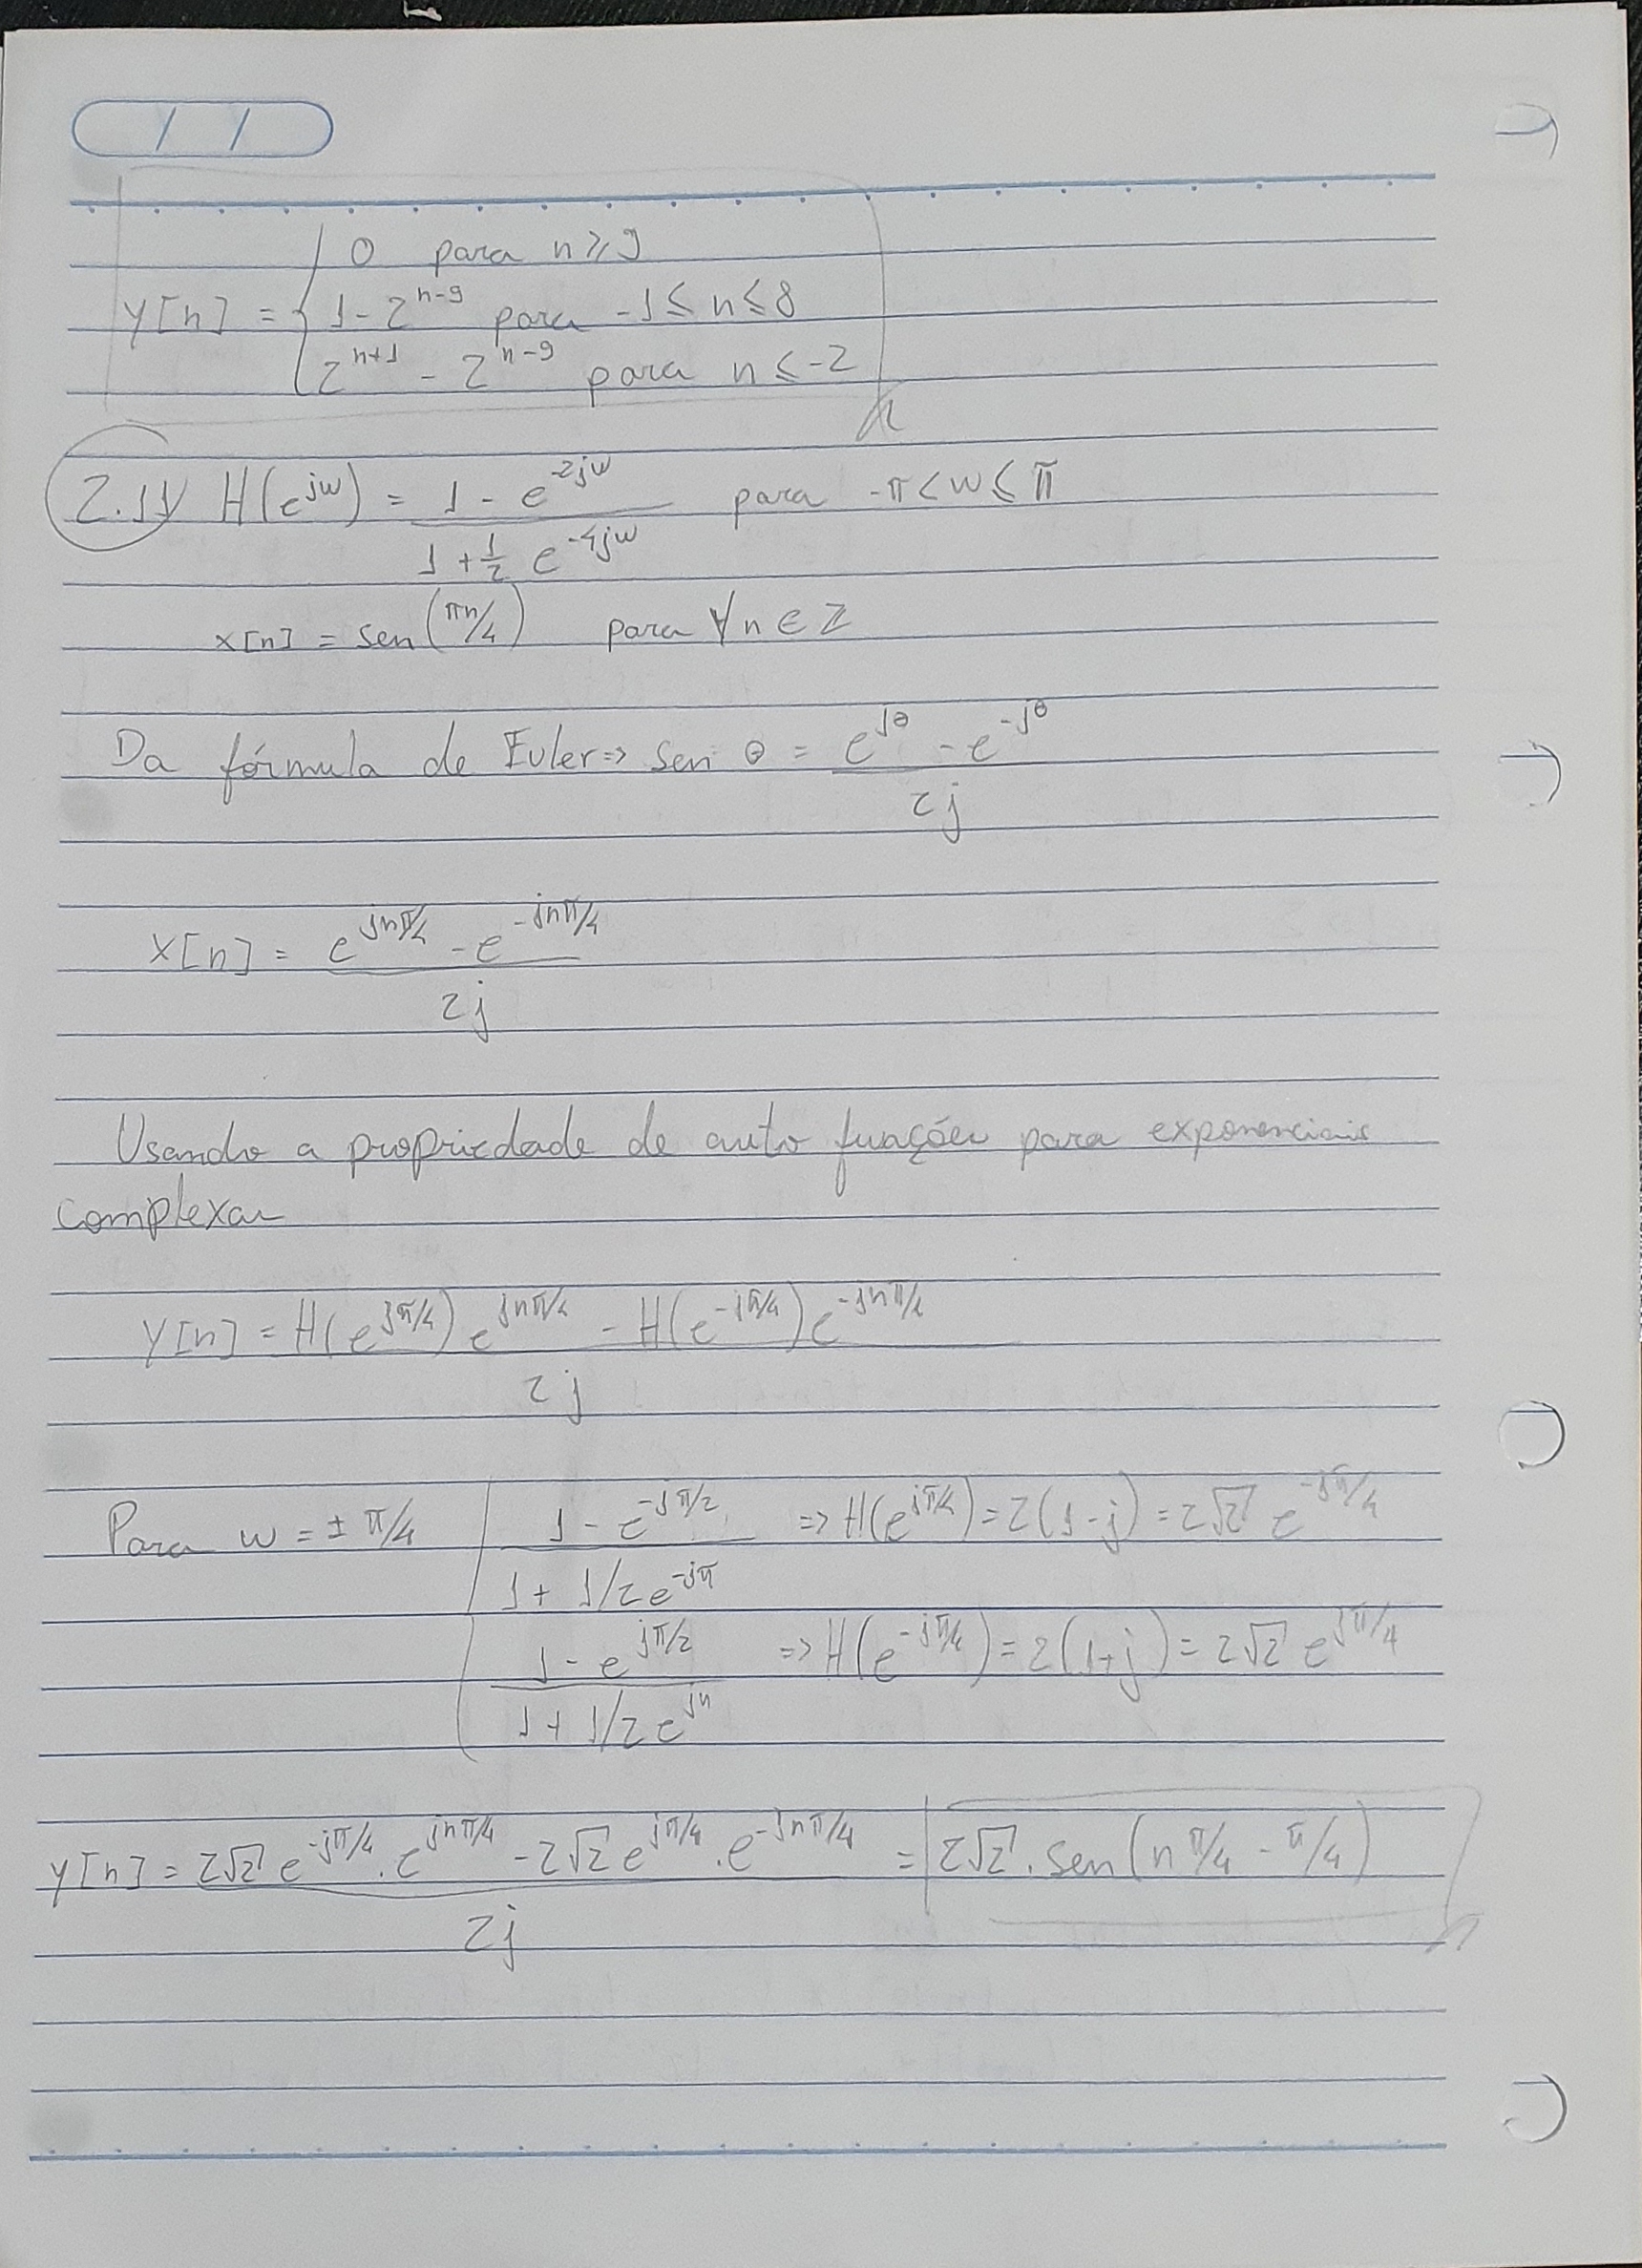 / /
0 para n ≥ 9
y[n] = { 1 - 2^{n-9} para -1 ≤ n ≤ 8
2^{n+1} - 2^{n-9} para n ≤ -2
2.11) H(e^{jw}) = (1 - e^{-2jw}) / (1 + 1/2 e^{-4jw}) para -π < w ≤ π
x[n] = sen(πn/4) para ∀n ∈ Z
Da fórmula de Euler => sen θ = (e^{jθ} - e^{-jθ}) / 2j
x[n] = (e^{jnπ/4} - e^{-jnπ/4}) / 2j
Usando a propriedade de auto funções para exponenciais
complexas
y[n] = (H(e^{jπ/4}) e^{jnπ/4} - H(e^{-jπ/4}) e^{-jnπ/4}) / 2j
Para w = ± π/4 { (1 - e^{-jπ/2}) / (1 + 1/2 e^{-jπ}) => H(e^{jπ/4}) = 2(1-j) = 2√2 e^{-jπ/4}
(1 - e^{jπ/2}) / (1 + 1/2 e^{jπ}) => H(e^{-jπ/4}) = 2(1+j) = 2√2 e^{jπ/4}
y[n] = (2√2 e^{-jπ/4} . e^{jnπ/4} - 2√2 e^{jπ/4} . e^{-jnπ/4}) / 2j = 2√2 . sen(nπ/4 - π/4)